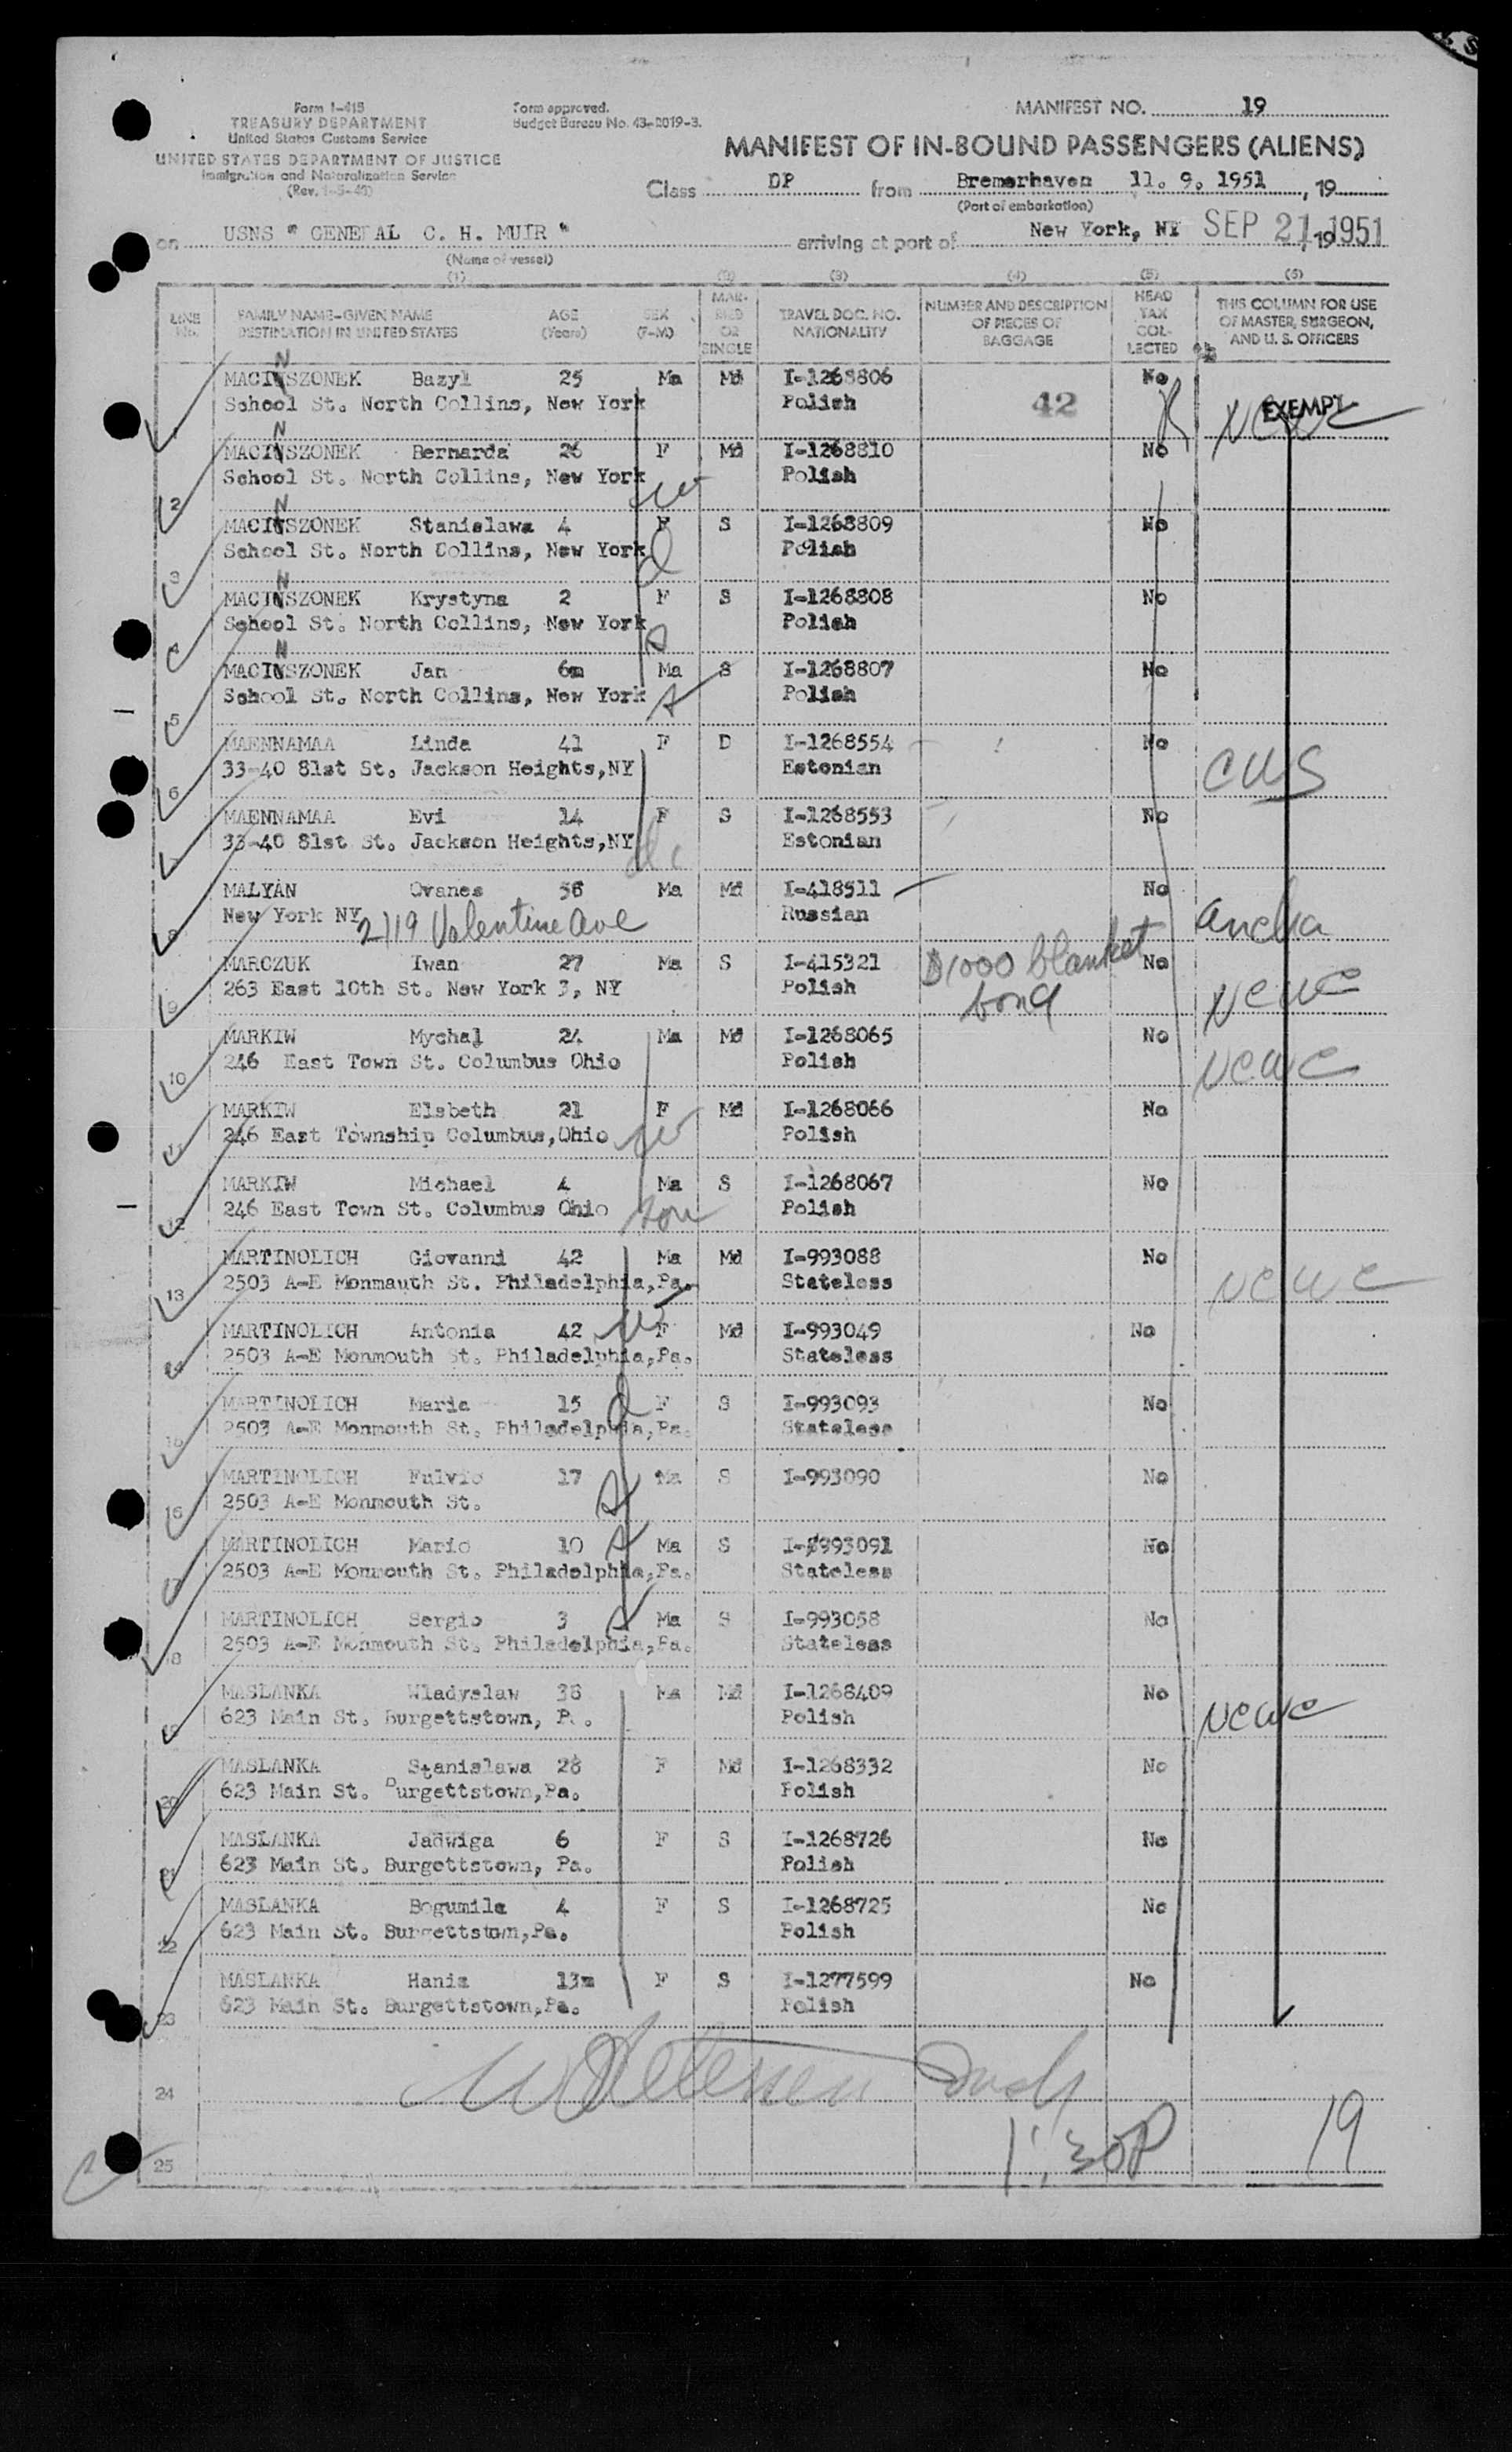 Form I-415
TREASURY DEPARTMENT
United States Customs Service
UNITED STATES DEPARTMENT OF JUSTICE
Immigration and Naturalization Service
Form approved.
Budget Bureau No. 43-R019-3.
MANIFEST NO. 19
MANIFEST OF IN-BOUND PASSENGERS (ALIENS)
Class DP from Bremerhaven 11. 9. 1951, 19
(Port of embarkation)
on USNS " GENERAL C. H. MUIR " arriving at port of New York, NY SEP 21 1951, 19
(Name of vessel)
(1) (2) (3) (4) (5) (6)
LINE No. FAMILY NAME-GIVEN NAME DESTINATION IN UNITED STATES AGE (Years) SEX (F-M) MARRIED OR SINGLE TRAVEL DOC. NO. NATIONALITY NUMBER AND DESCRIPTION OF PIECES OF BAGGAGE HEAD TAX COLLECTED THIS COLUMN FOR USE OF MASTER, SURGEON, AND U. S. OFFICERS
N
MACINSZONEK Bazyl 25 Ma Md I-1268806 No
School St. North Collins, New York Polish 42 EXEMPT NCWC
N
MACINSZONEK Bernarda 26 F Md I-1268810 No
2 School St. North Collins, New York Polish
N
MACINSZONEK Stanislawa 4 F S I-1268809 No
3 School St. North Collins, New York Polish
N
MACINSZONEK Krystyna 2 F S I-1268808 No
School St. North Collins, New York Polish
N
MACINSZONEK Jan 6m Ma S I-1268807 No
5 School St. North Collins, New York Polish
MAENNAMAA Linda 41 F D I-1268554 No
6 33-40 81st St. Jackson Heights,NY Estonian CWS
MAENNAMAA Evi 14 F S I-1268553 No
33-40 81st St. Jackson Heights,NY Estonian
MALYAN Ovanes 56 Ma Md I-418511 No
8 New York NY 2119 Valentine Ave Russian
MARCZUK Iwan 27 Ma S I-415321 $1000 blanket bond No
9 263 East 10th St. New York 3, NY Polish NCWC
MARKIW Mychal 24 Ma Md I-1268065 No
10 246 East Town St. Columbus Ohio Polish NCWC
MARKIW Elsbeth 21 F Md I-1268066 No
11 246 East Township Columbus,Ohio Polish
MARKIW Michael 4 Ma S I-1268067 No
12 246 East Town St. Columbus Ohio son Polish
MARTINOLICH Giovanni 42 Ma Md I-993088 No
13 2503 A-E Monmauth St. Philadelphia,Pa. Stateless NCWC
MARTINOLICH Antonia 42 F Md I-993049 No
2503 A-E Monmouth St. Philadelphia,Pa. Stateless
MARTINOLICH Maria 15 F S I-993093 No
2503 A-E Monmouth St. Philadelphia,Pa. Stateless
MARTINOLICH Fulvio 17 Ma S I-993090 No
16 2503 A-E Monmouth St.
MARTINOLICH Mario 10 Ma S I-993091 No
2503 A-E Monmouth St. Philadelphia,Pa. Stateless
MARTINOLICH Sergio 3 Ma S I-993058 No
18 2503 A-E Monmouth St. Philadelphia,Pa. Stateless
MASLANKA Wladyslaw 38 Ma Md I-1268409 No
19 623 Main St. Burgettstown, P . Polish NCWC
MASLANKA Stanislawa 28 F Md I-1268332 No
20 623 Main St. Burgettstown,Pa. Polish
MASLANKA Jadwiga 6 F S I-1268726 No
21 623 Main St. Burgettstown, Pa. Polish
MASLANKA Bogumila 4 F S I-1268725 No
22 623 Main St. Burgettstown,Pa. Polish
MASLANKA Hania 13m F S I-1277599 No
23 623 Main St. Burgettstown,Pa. Polish
24
25 1:30P 19